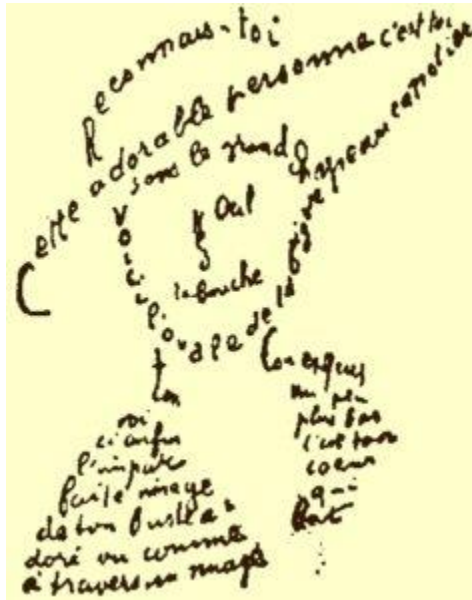 Reconnais-toi
Cette adorable personne c'est toi
sous le grand chapeau canotier
Oeil
Nez
la bouche
Voici l'ovale de ta figure
ton cou exquis
voici enfin
l'impar
faite image
de ton buste a
doré vu comme
à travers un nuage
un peu
plus bas
c'est ton
coeur
qui
bat